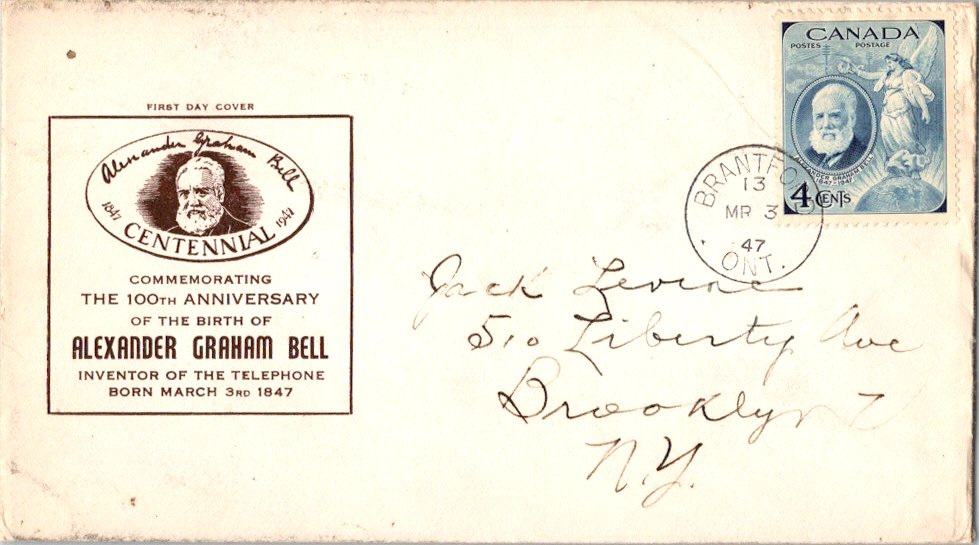 FIRST DAY COVER
Alexander Graham Bell
1847 1947
CENTENNIAL
COMMEMORATING
THE 100TH ANNIVERSARY
OF THE BIRTH OF
ALEXANDER GRAHAM BELL
INVENTOR OF THE TELEPHONE
BORN MARCH 3RD 1847
CANADA
POSTES POSTAGE
ALEXANDER GRAHAM BELL
1847-1947
4 CENTS
BRANTFORD
13
MR 3
47
ONT.
Jack Levine
510 Liberty Ave
Brooklyn
N.Y.